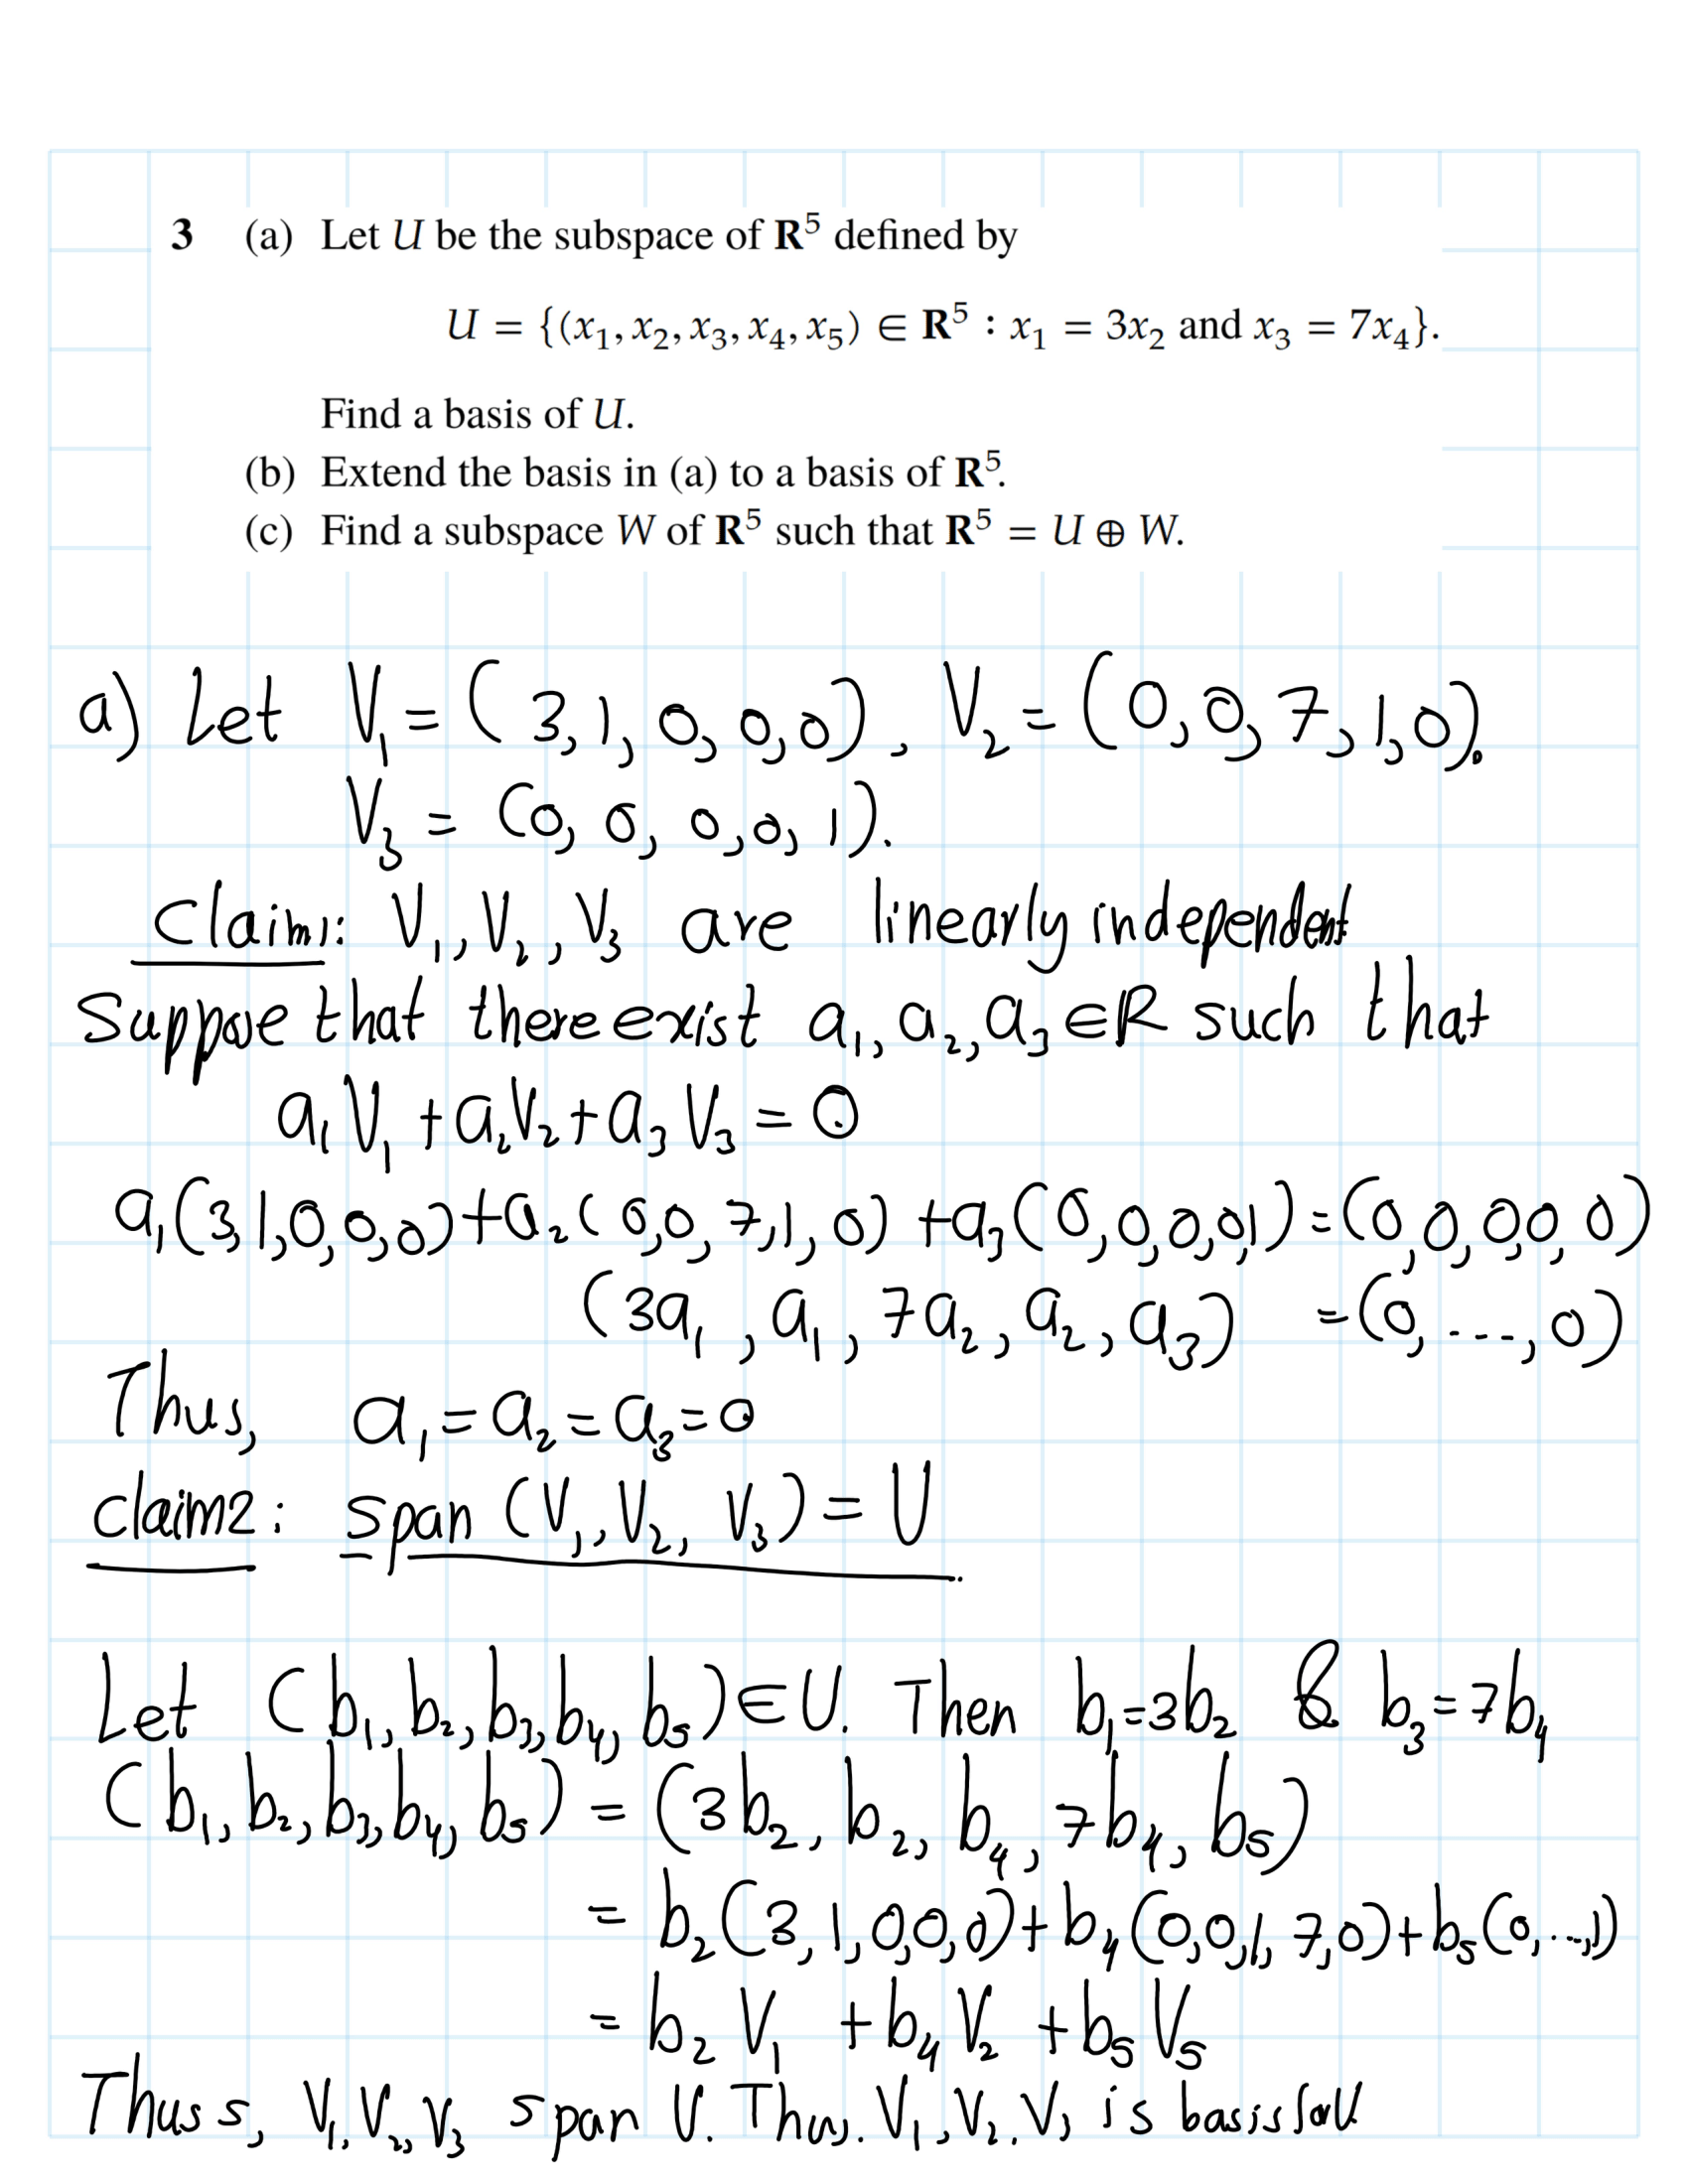 3 (a) Let U be the subspace of R⁵ defined by
U = {(x₁, x₂, x₃, x₄, x₅) ∈ R⁵ : x₁ = 3x₂ and x₃ = 7x₄}.
Find a basis of U.
(b) Extend the basis in (a) to a basis of R⁵.
(c) Find a subspace W of R⁵ such that R⁵ = U ⊕ W.
a) Let V₁ = (3,1,0,0,0), V₂ = (0,0,7,1,0).
V₃ = (0,0,0,0,1).
Claim1: V₁, V₂, V₃ are linearly independent
Suppose that there exist a₁, a₂, a₃ ∈ R such that
a₁V₁ + a₂V₂ + a₃V₃ = 0
a₁(3,1,0,0,0) + a₂(0,0,7,1,0) + a₃(0,0,0,0,1) = (0,0,0,0,0)
(3a₁, a₁, 7a₂, a₂, a₃) = (0,...,0)
Thus, a₁ = a₂ = a₃ = 0
claim2: span (V₁, V₂, V₃) = U
Let (b₁, b₂, b₃, b₄, b₅) ∈ U. Then b₁ = 3b₂ & b₃ = 7b₄
(b₁, b₂, b₃, b₄, b₅) = (3b₂, b₂, b₄, 7b₄, b₅)
= b₂(3,1,0,0,0) + b₄(0,0,1,7,0) + b₅(0,...,1)
= b₂V₁ + b₄V₂ + b₅V₅
Thus s, V₁, V₂, V₃ span U. Thus. V₁, V₂, V₃ is basis for U